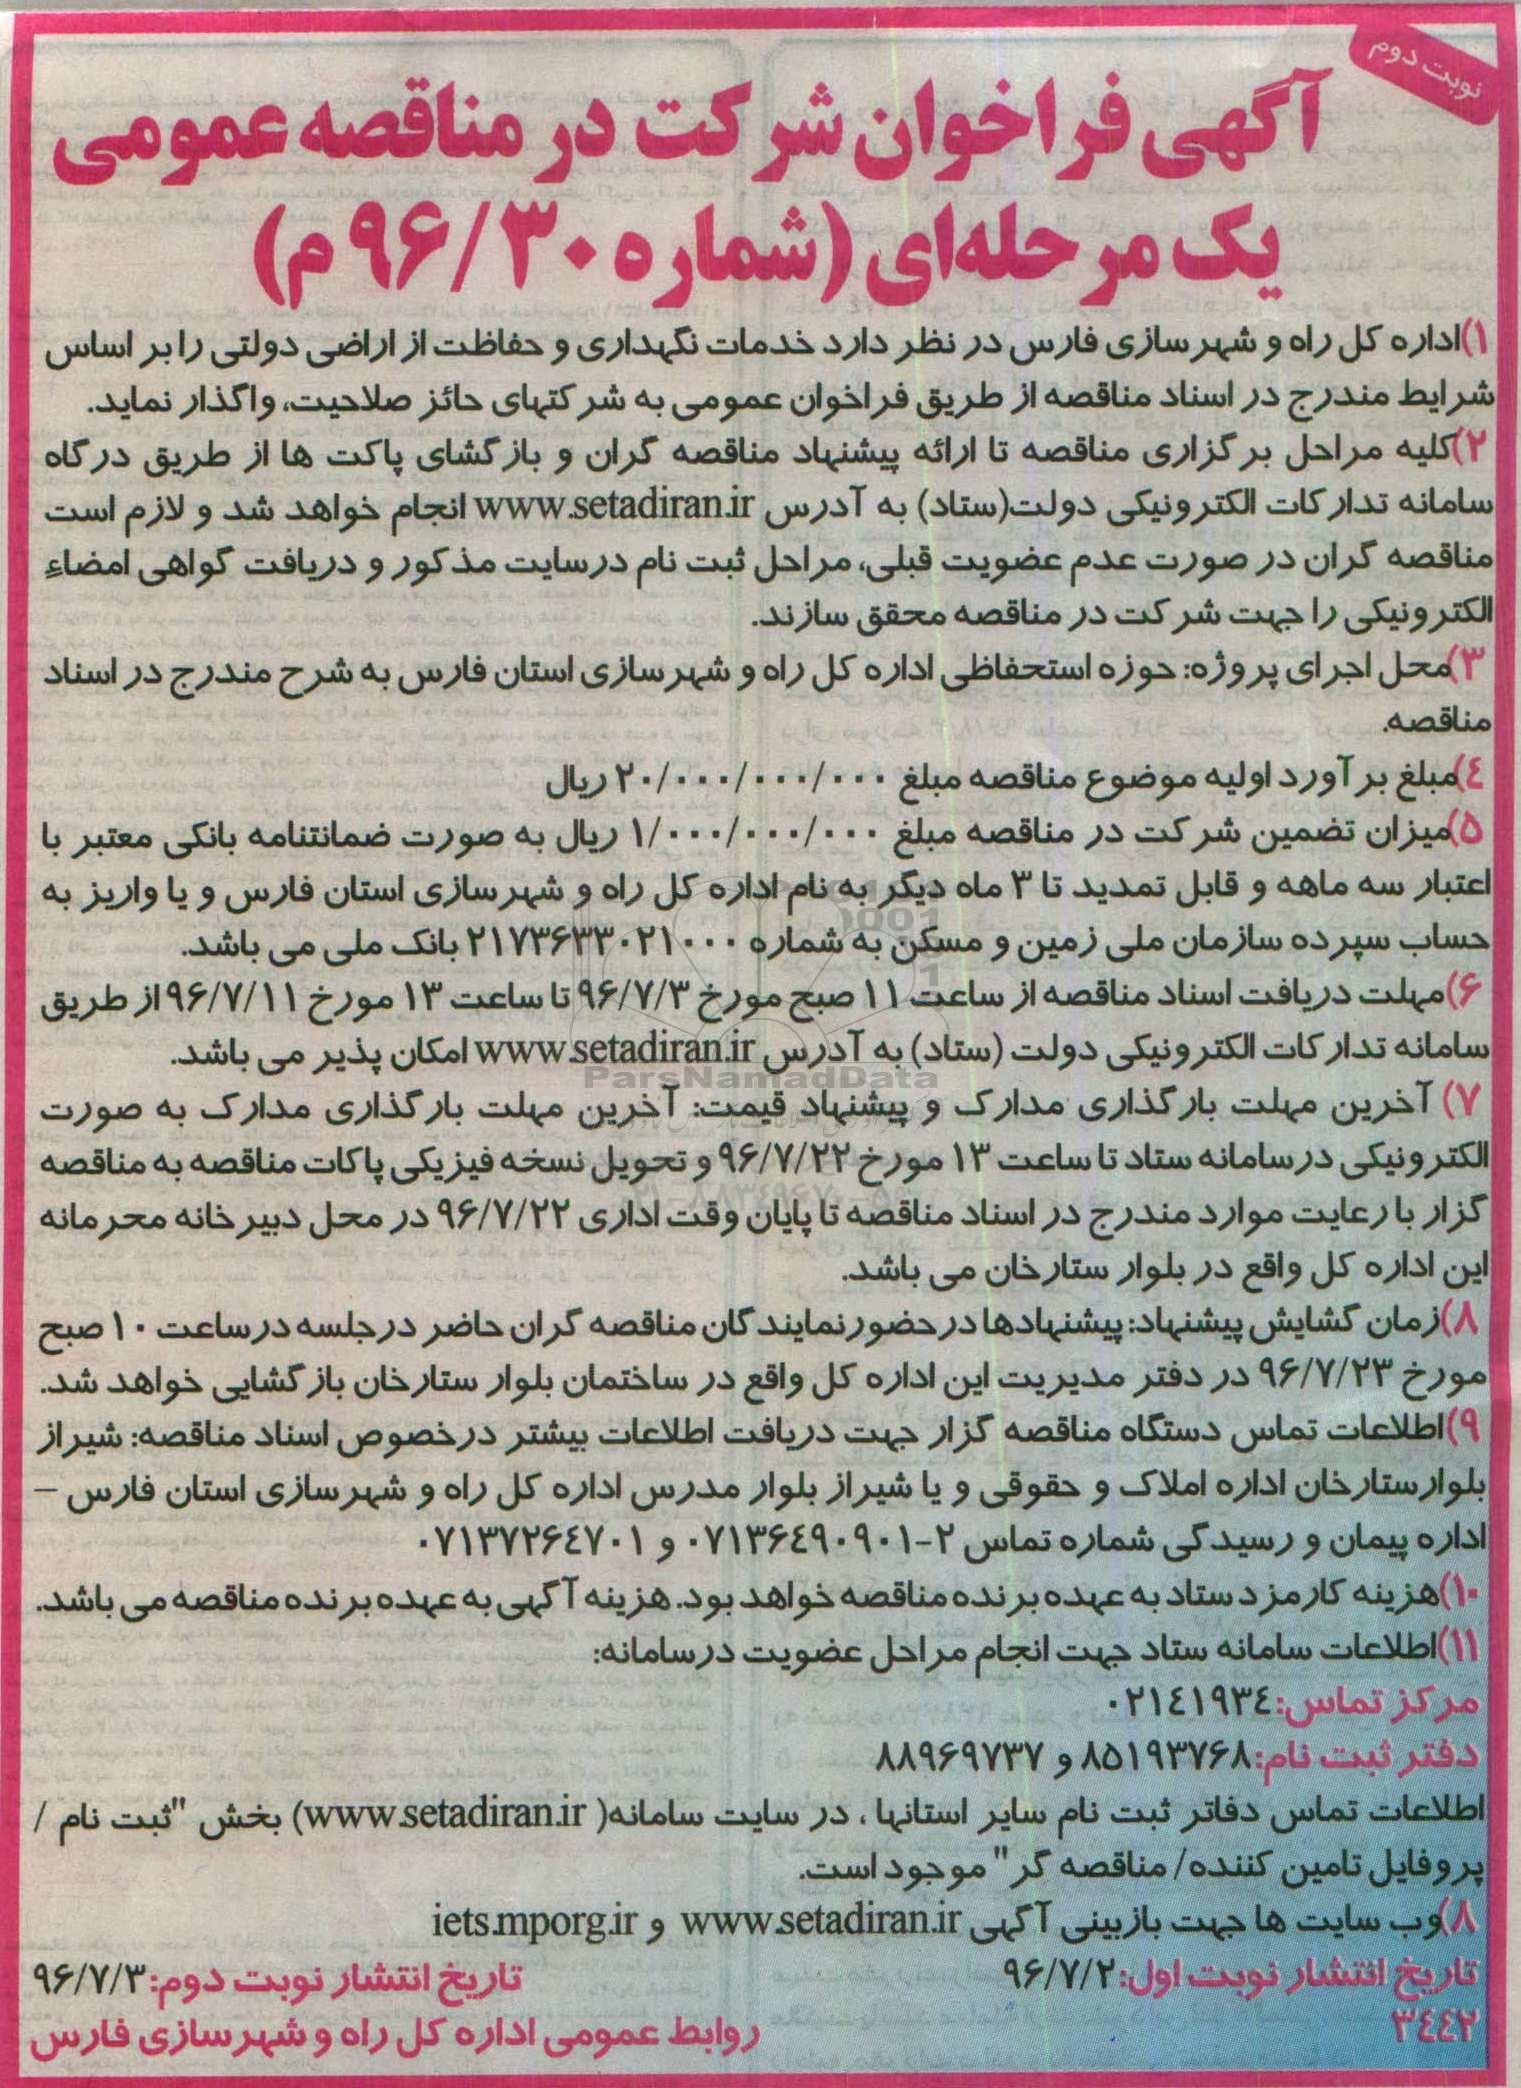 نوبت دوم
آگهی فراخوان شرکت در مناقصه عمومی
یک مرحله‌ای (شماره ۹۶/۳۰ م)
۱)اداره کل راه و شهرسازی فارس در نظر دارد خدمات نگهداری و حفاظت از اراضی دولتی را بر اساس
شرایط مندرج در اسناد مناقصه از طریق فراخوان عمومی به شرکتهای حائز صلاحیت، واگذار نماید.
۲)کلیه مراحل برگزاری مناقصه تا ارائه پیشنهاد مناقصه گران و بازگشای پاکت ها از طریق درگاه
سامانه تدارکات الکترونیکی دولت(ستاد) به آدرس www.setadiran.ir انجام خواهد شد و لازم است
مناقصه گران در صورت عدم عضویت قبلی، مراحل ثبت نام درسایت مذکور و دریافت گواهی امضاء
الکترونیکی را جهت شرکت در مناقصه محقق سازند.
۳)محل اجرای پروژه: حوزه استحفاظی اداره کل راه و شهرسازی استان فارس به شرح مندرج در اسناد
مناقصه.
۴)مبلغ برآورد اولیه موضوع مناقصه مبلغ ۲۰/۰۰۰/۰۰۰/۰۰۰ ریال
۵)میزان تضمین شرکت در مناقصه مبلغ ۱/۰۰۰/۰۰۰/۰۰۰ ریال به صورت ضمانتنامه بانکی معتبر با
اعتبار سه ماهه و قابل تمدید تا ۳ ماه دیگر به نام اداره کل راه و شهرسازی استان فارس و یا واریز به
حساب سپرده سازمان ملی زمین و مسکن به شماره ۲۱۷۳۶۳۳۰۲۱۰۰۰ بانک ملی می باشد.
۶)مهلت دریافت اسناد مناقصه از ساعت ۱۱ صبح مورخ ۹۶/۷/۳ تا ساعت ۱۳ مورخ ۹۶/۷/۱۱ از طریق
سامانه تدارکات الکترونیکی دولت (ستاد) به آدرس www.setadiran.ir امکان پذیر می باشد.
ParsNamadData
۷) آخرین مهلت بارگذاری مدارک و پیشنهاد قیمت: آخرین مهلت بارگذاری مدارک به صورت
الکترونیکی درسامانه ستاد تا ساعت ۱۳ مورخ ۹۶/۷/۲۲ و تحویل نسخه فیزیکی پاکات مناقصه به مناقصه
گزار با رعایت موارد مندرج در اسناد مناقصه تا پایان وقت اداری ۹۶/۷/۲۲ در محل دبیرخانه محرمانه
این اداره کل واقع در بلوار ستارخان می باشد.
۸)زمان گشایش پیشنهاد: پیشنهادها در حضور نمایندگان مناقصه گران حاضر در جلسه در ساعت ۱۰ صبح
مورخ ۹۶/۷/۲۳ در دفتر مدیریت این اداره کل واقع در ساختمان بلوار ستارخان بازگشایی خواهد شد.
۹)اطلاعات تماس دستگاه مناقصه گزار جهت دریافت اطلاعات بیشتر درخصوص اسناد مناقصه: شیراز
بلوارستارخان اداره املاک و حقوقی و یا شیراز بلوار مدرس اداره کل راه و شهرسازی استان فارس –
اداره پیمان و رسیدگی شماره تماس ۲-۰۷۱۳۶۴۹۰۹۰۱ و ۰۷۱۳۷۲۶۴۷۰۱
۱۰)هزینه کارمزد ستاد به عهده برنده مناقصه خواهد بود. هزینه آگهی به عهده برنده مناقصه می باشد.
۱۱)اطلاعات سامانه ستاد جهت انجام مراحل عضویت درسامانه:
مرکز تماس: ۰۲۱۴۱۹۳۴
دفتر ثبت نام: ۸۵۱۹۳۷۶۸ و ۸۸۹۶۹۷۳۷
اطلاعات تماس دفاتر ثبت نام سایر استانها ، در سایت سامانه( www.setadiran.ir) بخش "ثبت نام /
پروفایل تامین کننده/ مناقصه گر" موجود است.
۸)وب سایت ها جهت بازبینی آگهی www.setadiran.ir و iets.mporg.ir
تاریخ انتشار نوبت اول: ۹۶/۷/۲ تاریخ انتشار نوبت دوم: ۹۶/۷/۳
۳۴۴۲ روابط عمومی اداره کل راه و شهرسازی فارس